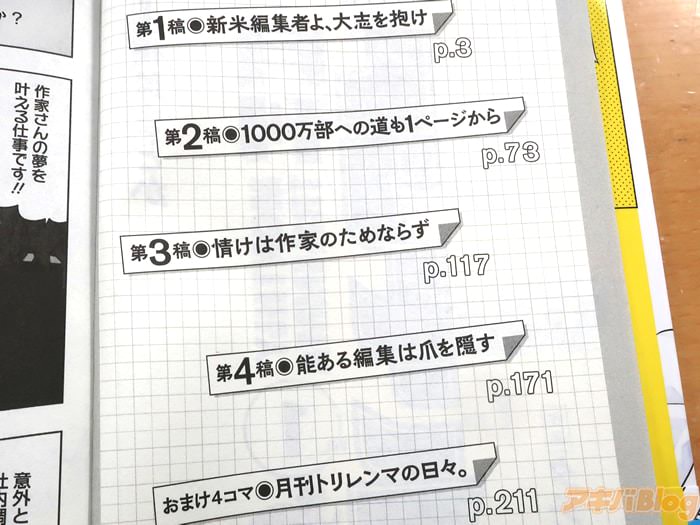 か?
作家さんの夢を
叶える仕事です!!
意外と
第1稿◉新米編集者よ、大志を抱け
p.3
第2稿◉1000万部への道も1ページから
p.73
第3稿◉情けは作家のためならず
p.117
第4稿◉能ある編集は爪を隠す
p.171
おまけ4コマ◉月刊トリレンマの日々。
p.211
アキバBlog